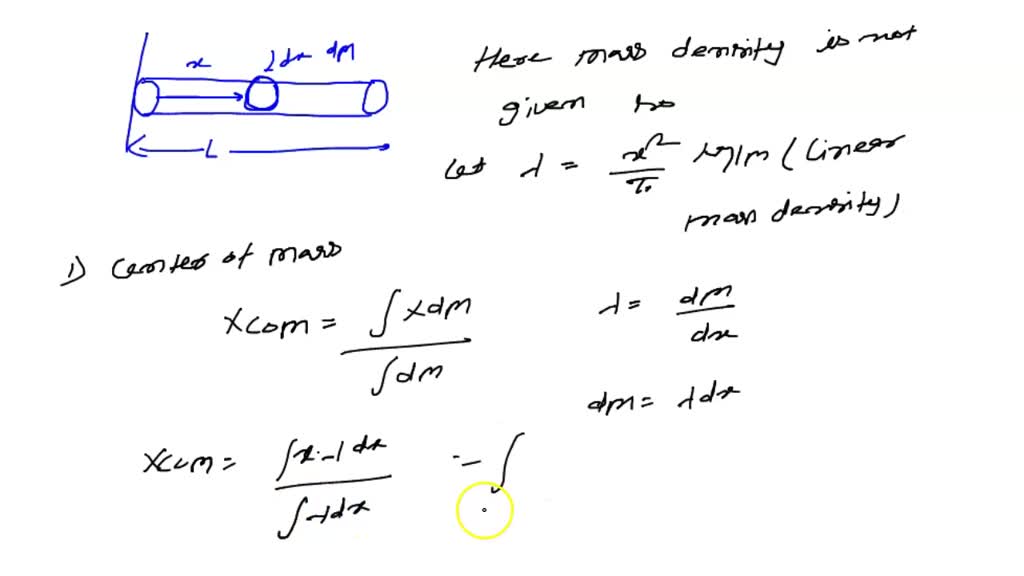 x dx dm
L
Here mass density is not
given so
Let λ = x²/T₀ kg/m (Linear
mass density)
1) Center of mass
Xcom = ∫xdm / ∫dm
λ = dm/dx
dm = λdx
Xcom = ∫x·λdx / ∫λdx = ∫